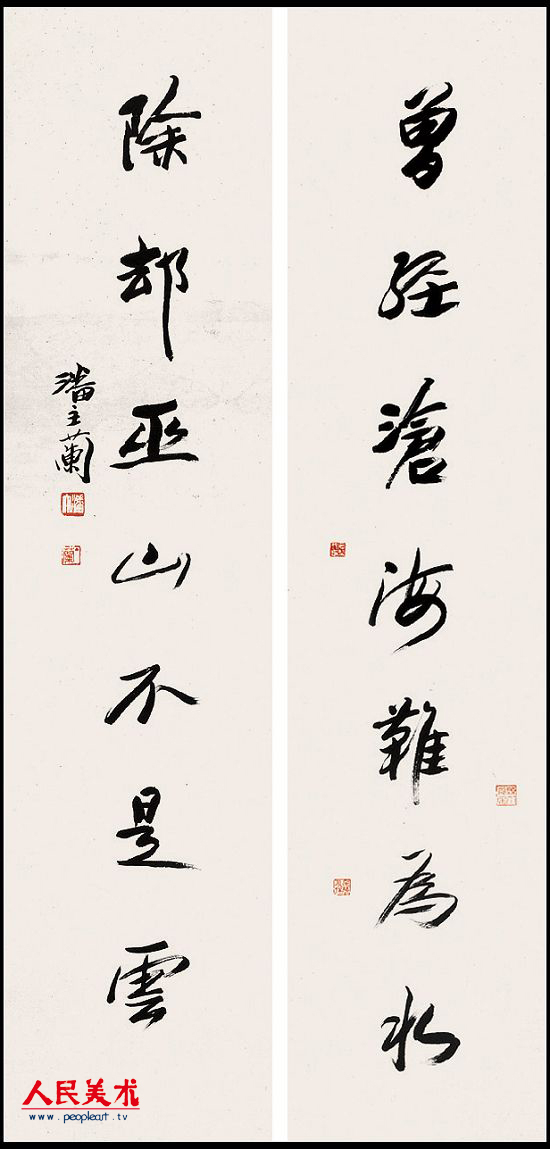 曾經滄海難為水
除却巫山不是雲
潘主蘭
人民美术
www.peopleart.tv